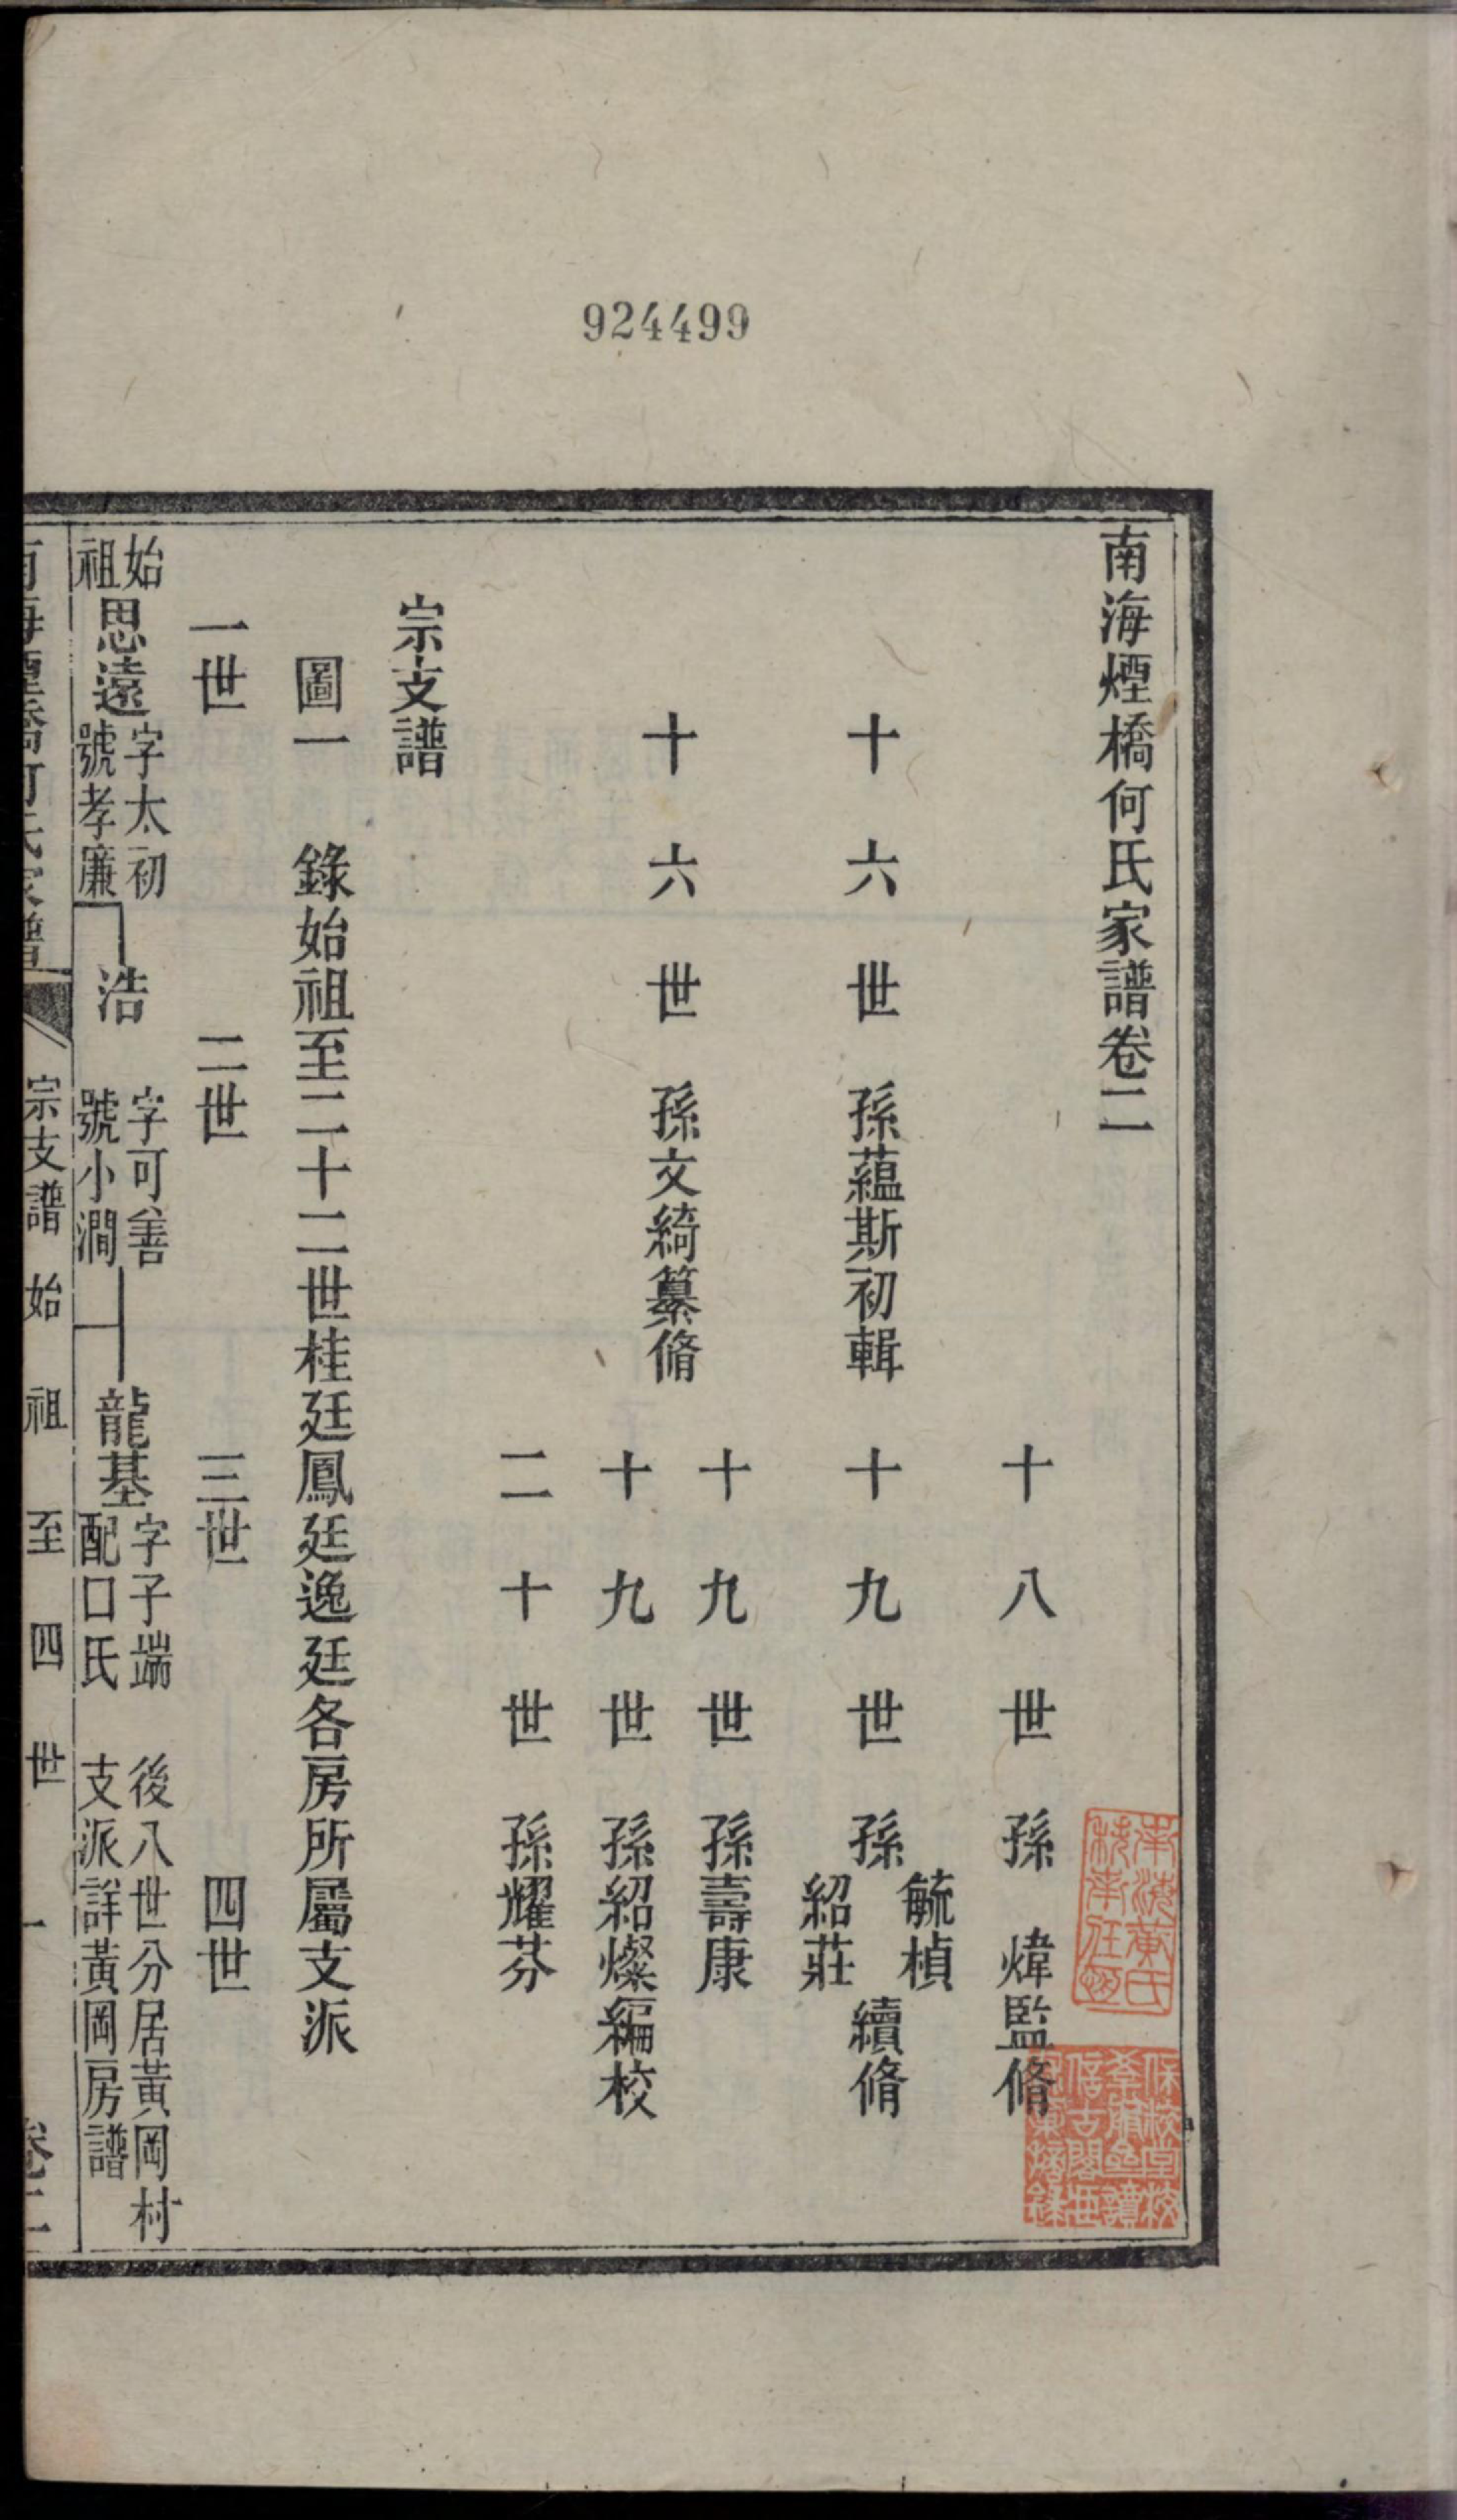 924499
南海煙橋何氏家譜卷二
十八世孫 煒監脩
十六世孫蘊斯初輯 十九世孫毓楨紹莊續脩
十九世孫壽康
十六世孫文綺纂脩
十九世孫紹燦編校
二十世孫耀芬
宗支譜
圖一 錄始祖至二十二世桂廷鳳廷逸廷各房所屬支派
一世 二世 三世 四世
始祖思遠 字太初 號孝廉
浩 字可善 號小澗
龍基 字子端 配口氏 後八世分居黃岡村 支派詳黃岡房譜
南海煙橋何氏家譜 宗支譜 始祖至四世 一 卷二